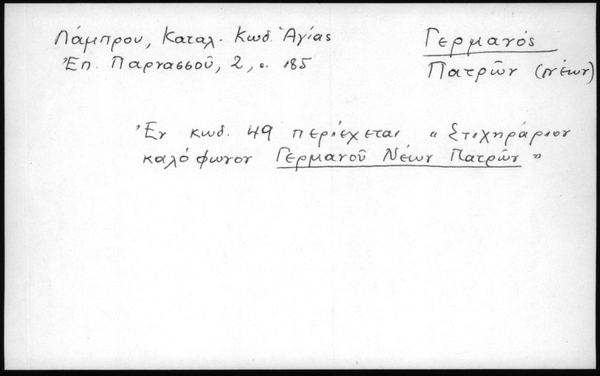 Λάμπρου, Καταλ. Κωδ. Ἁγίας
Ἐπ. Παρνασσοῦ, 2, σ. 185
Γερμανός
Πατρῶν (νέων)
Ἐν κωδ. 49 περιέχεται "Στιχηράριον
καλόφωνον Γερμανοῦ Νέων Πατρῶν"